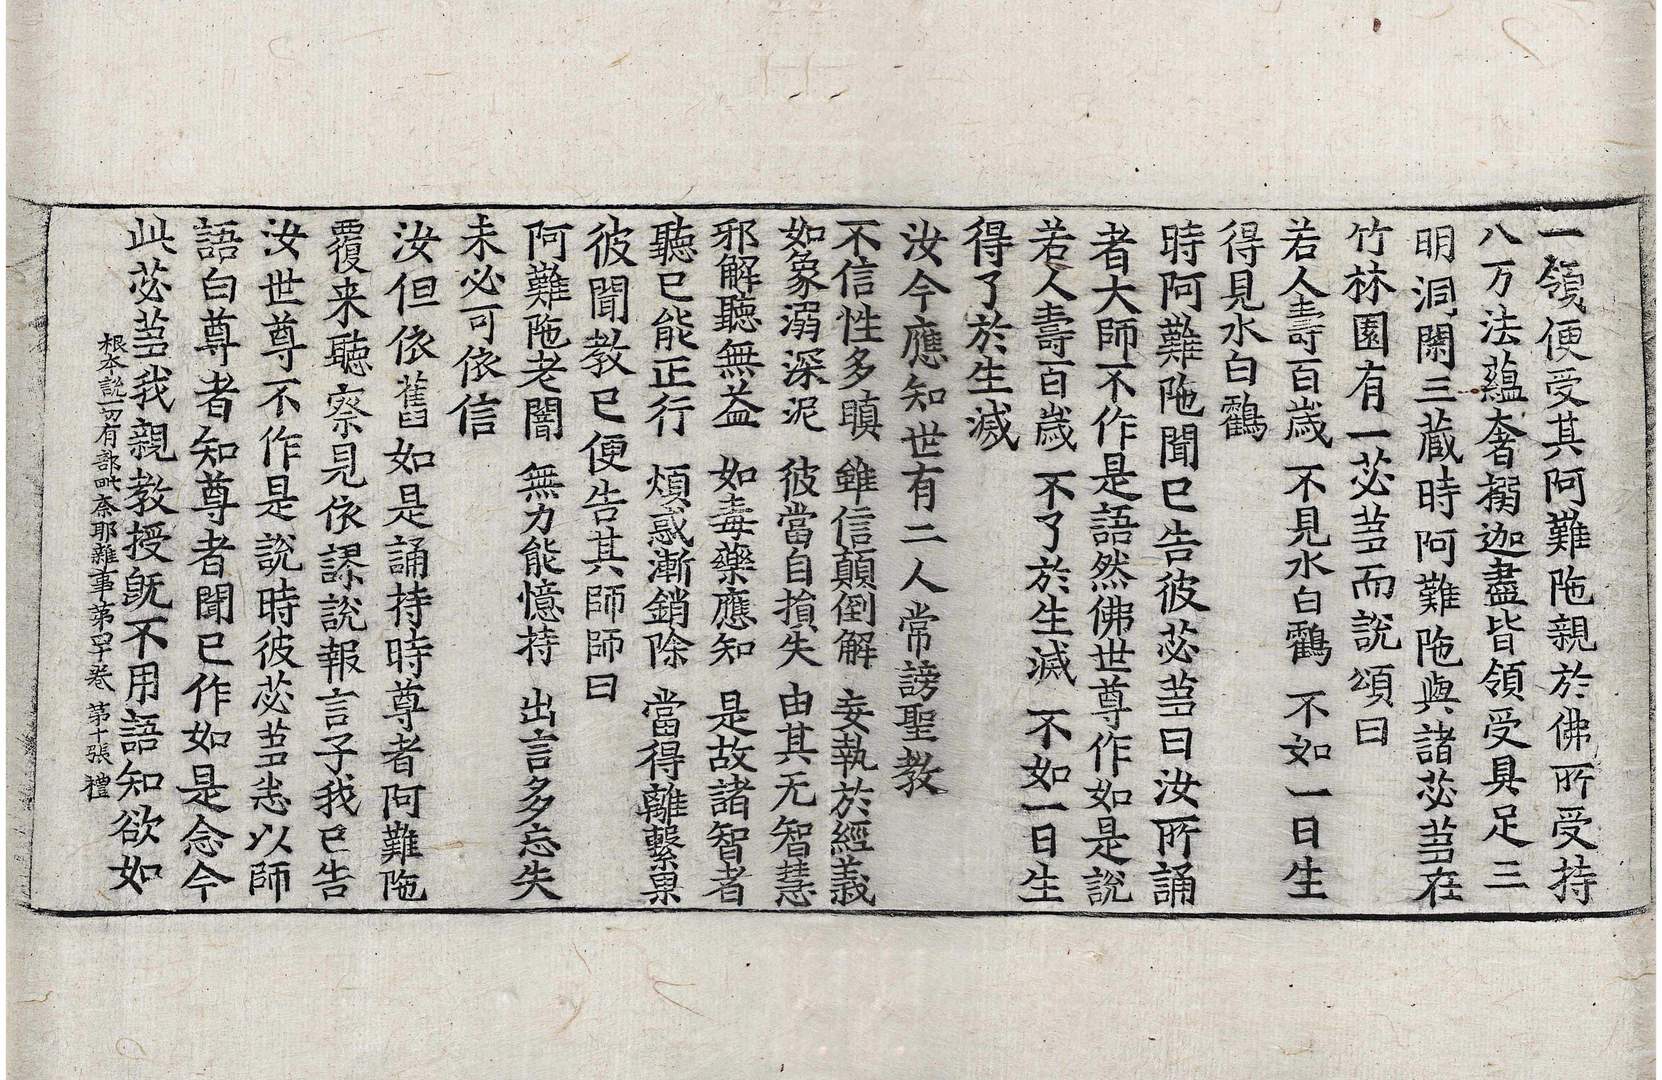 一領便受其阿難陁親於佛所受持
八万法蘊奢搦迦盡皆領受具足三
明洞閑三藏時阿難陁與諸苾蒭在
竹林園有一苾蒭而說頌曰
若人壽百歲 不見水白鸖 不如一日生
得見水白鸖
時阿難陁聞已告彼苾蒭曰汝所誦
者大師不作是語然佛世尊作如是說
若人壽百歲 不了於生滅 不如一日生
得了於生滅
汝今應知世有二人常謗聖教
不信性多瞋 雖信顛倒解 妄執於經義
如象溺深泥 彼當自損失 由其无智慧
邪解聽無益 如毒藥應知 是故諸智者
聽已能正行 煩惑漸銷除 當得離繫果
彼聞教已便告其師師曰
阿難陁老闇 無力能憶持 出言多忘失
未必可依信
汝但依舊如是誦持時尊者阿難陁
覆来聽察見依謬說報言子我已告
汝世尊不作是說時彼苾蒭悉以師
語白尊者知尊者聞已作如是念今
此苾蒭我親教授旣不用語知欲如
根本說一切有部毗奈耶雜事第四十卷 第十張 禮